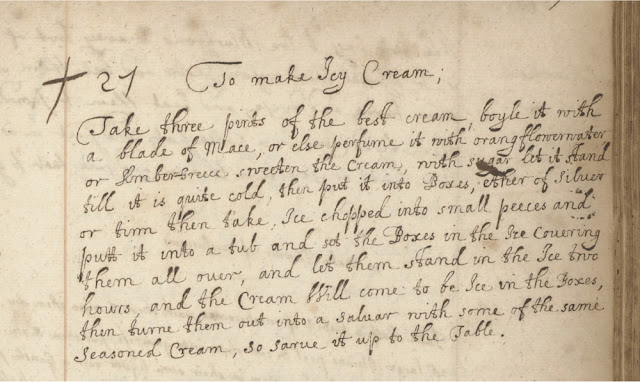 27 To make Icy Cream;
Take three pints of the best cream, boyle it with
a blade of Mace, or else perfume it with orangflowerwater
or Amber-Greece sweeten the Cream, with sugar let it stand
till it is quite cold, then put it into Boxes, ether of Silver
or tinn then take, Ice chopped into small peeces and
putt it into a tub and set the Boxes in the Ice Covering
them all over, and let them stand in the Ice two
hours, and the Cream Will come to be Ice in the Boxes,
then turne them out into a salvar with some of the same
Seasoned Cream, so sarve it up to the Table.